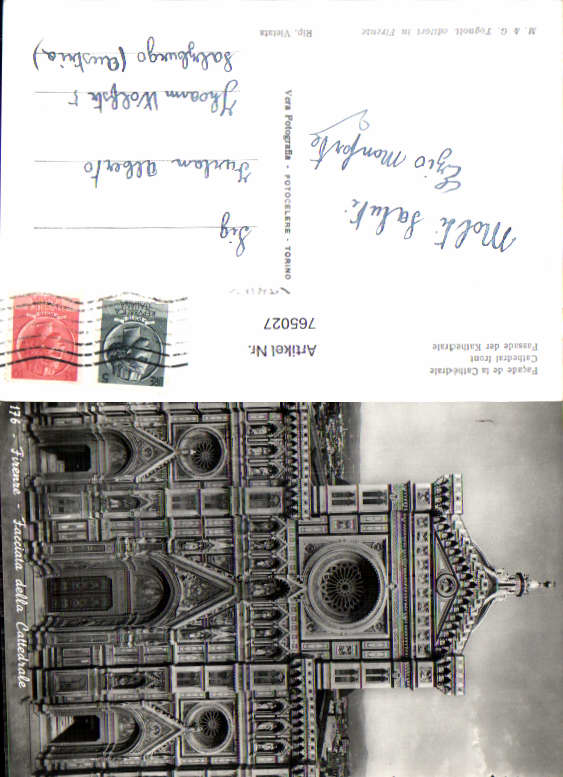 Façade de la Cathédrale
Cathedral front
Fassade der Kathedrale
Artikel Nr.
765027
Molti Saluti
Ezio Monforte
Vera Fotografia - FOTOCELERE - TORINO
Sig
Furlan Alberto
Salzburgo (Austria)
M. & G. Fognoli, editori in Firenze
Rip. Vietata
176 - Firenze - Facciata della Cattedrale